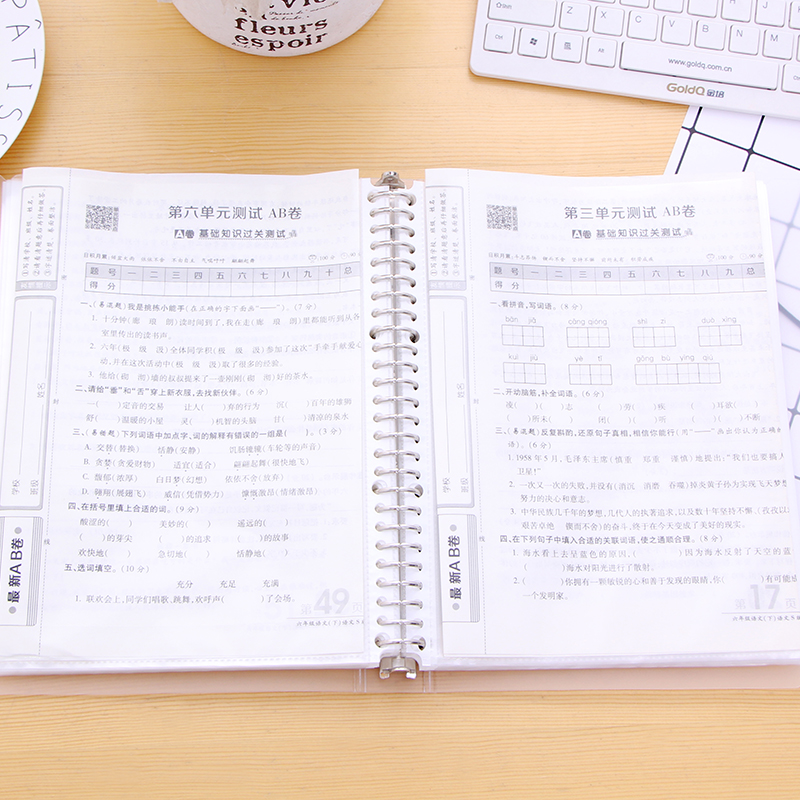 fleurs
espoir
www.goldq.com.cn
GoldQ 金培
第六单元测试 AB卷
A卷 基础知识过关测试
题 号 一 二 三 四 五 六 七 八 九 十 总
得 分
一、(易混题)我是挑拣小能手(在正确的字下面画“——”)。(7分)
1. 十分钟(廊 琅 朗)读时间到了,我在走(廊 琅 朗)里都能听到从各
室里传出的读书声。
2. 六年(极 级 汲)全体同学积(极 级 汲)参加了这次“手牵手献爱心
动,并在这次活动中(极 级 汲)取了很多的经验。
3. 他给(砌 沏)墙的叔叔提来了一壶刚刚(砌 沏)好的茶水。
二、请给“垂”和“舌”穿上新衣服,去找新伙伴。(6分)
一( )定音的交易 让人( )弃的行为 沉( )百年的雄狮
舒( )温暖的小屋 灵( )机智的头脑 甘( )清凉的泉水
三、(易错题)下列词语中加点字、词的解释有错误的一组是( )。(3分)
A. 交替(替换) 恬静(安静) 饥肠辘辘(车轮等的声音)
B. 贪婪(贪爱财物) 适宜(适合) 翩翩起舞(很快地飞)
C. 馥郁(浓厚) 白日梦(幻想) 依依不舍(放弃)
D. 翱翔(展翅飞) 威信(凭借势力) 慷慨激昂(情绪激昂)
四、在括号里填上合适的词。(9分)
酸涩的( ) 美妙的( ) 遥远的( )
( )的芽尖 ( )的追求 ( )的故事
欢快地( ) 急切地( ) 恬静地( )
五、选词填空。(10分)
充分 充足 充满
1. 联欢会上,同学们唱歌、跳舞,欢呼声( )了会场。
第49页
六年级语文(下)语文
学校
班级
姓名
最新AB卷
第三单元测试 AB卷
A卷 基础知识过关测试
题 号 一 二 三 四 五 六 七 八 九 十 总
得 分
一、看拼音,写词语。(8分)
bān jiā cāng qióng shī zi duō xíng
二、开动脑筋,补全词语。(6分)
三、(易混题)反复斟酌,还原句子真相,相信你能行(用“——”画出你认为正确的
(6分)
1. 1958年5月,毛泽东主席(慎重 郑重 淳慎)地提出:“我们也要搞人
卫星!”
2. 一次又一次的失败,并没有(消沉 消磨 吞噬)掉炎黄子孙为实现飞天梦想
努力的决心和意志。
3. 中华民族几千年的梦想、几代人的执著追求,以及数十年坚持不懈、(孜孜以
艰苦卓绝 锲而不舍)的奋斗,终于在今天变成了美好的现实。
四、在下列句子中填入合适的关联词语,使之通顺合理。(8分)
1. 海水看上去呈蓝色的原因,( )因为海水反射了天空的蓝
( )海水对阳光进行了散射。
2. ( )你拥有一颗敏锐的心和善于发现的眼睛,你( )有可能成
一个发明家。
第17页
六年级语文(下)语文
学校
班级
姓名
最新AB卷